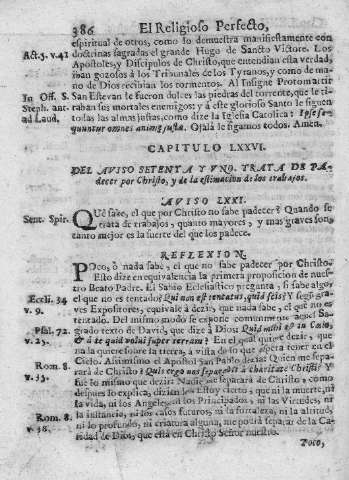 386 El Religioso Perfecto,
espiritual de otros, como lo demuestra manifiestamente con
Act. 5. v. 41 doctrinas sagradas el grande Hugo de Sancto Victore. Los
Apostoles, y Discipulos de Christo, que entendian esta verdad,
iban gozosos à los Tribunales de los Tyranos, y como de ma-
no de Dios recibian los tormentos. Al Insigne Protomartir
In Off. S. San Estevan le fueron dulces las piedras del torrente, que le ti-
Steph. ant. raban sus mortales enemigos; y à este glorioso Santo le siguen
ad Laud. todas las almas justas, como dize la Iglesia Catolica: Ipse se-
quuntur omnes animæ justa. Ojalà le sigamos todos. Amen.
CAPITULO LXXVI.
DEL AVISO SETENTA Y UNO. TRATA DE PA-
decer por Christo, y de la estimacion de los trabajos.
AVISO LXXI.
Sent. Spir. QUè sabe, el que por Christo no sabe padecer? Quando se
trata de trabajos, quanto mayores, y mas graves son,
tanto mejor es la suerte del que los padece.
REFLEXION.
POco, ò nada sabe, el que no sabe padecer por Christo.
Esto dize en equivalencia la primera proposicion de nues-
tro Beato Padre. El Sabio Eclesiastico pregunta, si sabe algo
Eccli. 34 el que no es tentado? Qui non est tentatus, quid scit? Y segun gra-
v. 9. ves Expositores, equivale à dezir, que nada sabe, el que no es
tentado. Del mismo modo se expone comunmente aquel Sa-
Psal. 72. grado texto de David, que dize à Dios: Quid mihi est in Cœlo,
v. 25. & à te quid volui super terram? En el qual quiere dezir, que
na la quiere sobre la tierra, à vista de lo que espera tener en el
Cielo. Assimismo el Apostol San Pablo dezia: Quien me sepa-
Rom. 8. rarà de Christo? Quis ergo nos separabit à charitate Christi? Y
v. 35. fue lo mismo que dezir: Nadie me separarà de Christo; como
despues lo explica, diziendo: Estoy cierto, que ni la muerte, ni
la vida, ni los Angeles, ni los Principados, ni las Virtudes, ni
Rom. 8. la instancia, ni los casos futuros, ni la fortaleza, ni la altitud,
v. 38. ni lo profundo, ni criatura alguna, me podrà separar de la Ca-
ridad de Dios, que està en Christo Señor nuestro.
Poco,